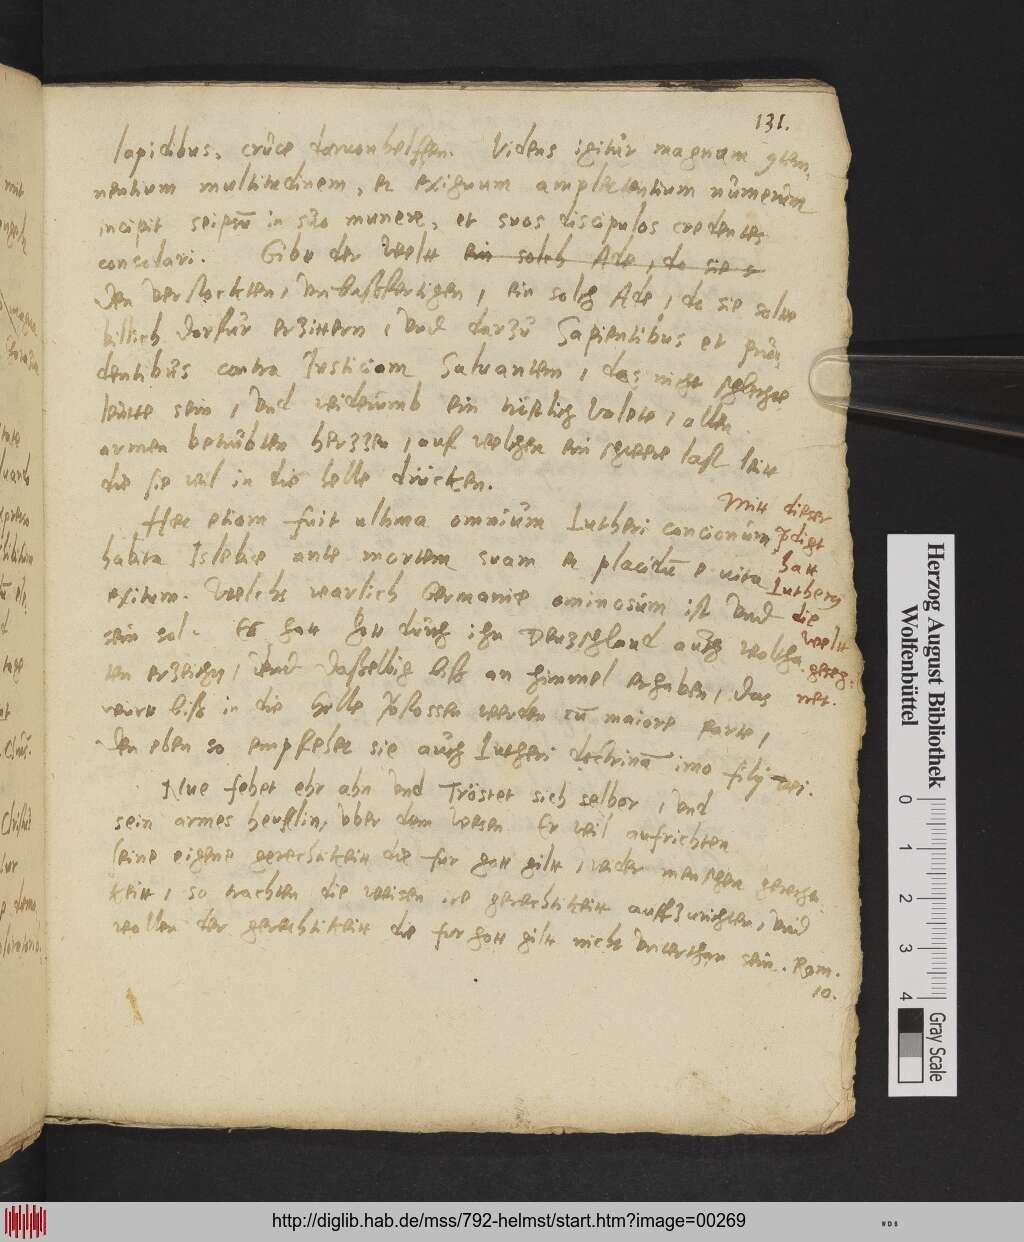 131.
lapidibus, cruce daruon helffen. Videns igitur magnam
nentium multitudinem, et exiguum amplectentium numerum
incipit seipsū in suo munere, et suos discipulos credentes
consolari. Gibt der Welt ein solch Ade, do sie s
den verstockten, vnbußfertigen, ein solch Ade, do sie solte
billich dorfur erzittern, vnd darzu Sapientibus et pru
dentibus contra Iusticiam Saluantem, das nicht schlechte
leutte sein, vnd widerumb ein tröstlich Valete, allen
armen betrubten herzzen, auf welchen ein schwere last leitt
die sie wil in die helle drücken.
Hec etiam fuit ultima omnium Lutheri concionum
habita Islebiae ante mortem suam et placidū e vita
exitum. Welchs warlich Germaniae ominosum ist vnd
sein sol. Es hatt Gott durch ihn Deuzschland auch woltha
ten erzeichn, vnd dasselbig biß an himmel erhaben, das
wird biß in die helle gstossen werden zū maiore parte,
den eben so empfehet sie auch Lutheri doctrinā imo filij Dei.
Nue fehet ehr ahn vnd Tröstet sich selber, vnd
sein armes heufflin, vber dem Wesen Er wil aufrichten
seine eigene gerechtikeitt die fur gott gilt, wider menschen gerechti
keitt, so trachten die weisen ire gerechtikeitt auffzurichten, vnd
wollen der gerechtikeitt die fur gott gilt nicht vnterthan sein. Rom.
10.
Mitt dieser
Pdigt
hatt
Lutherus
die
Welt
geseg:
net.
Herzog August Bibliothek
Wolfenbüttel
0 1 2 3 4
Gray Scale
http://diglib.hab.de/mss/792-helmst/start.htm?image=00269